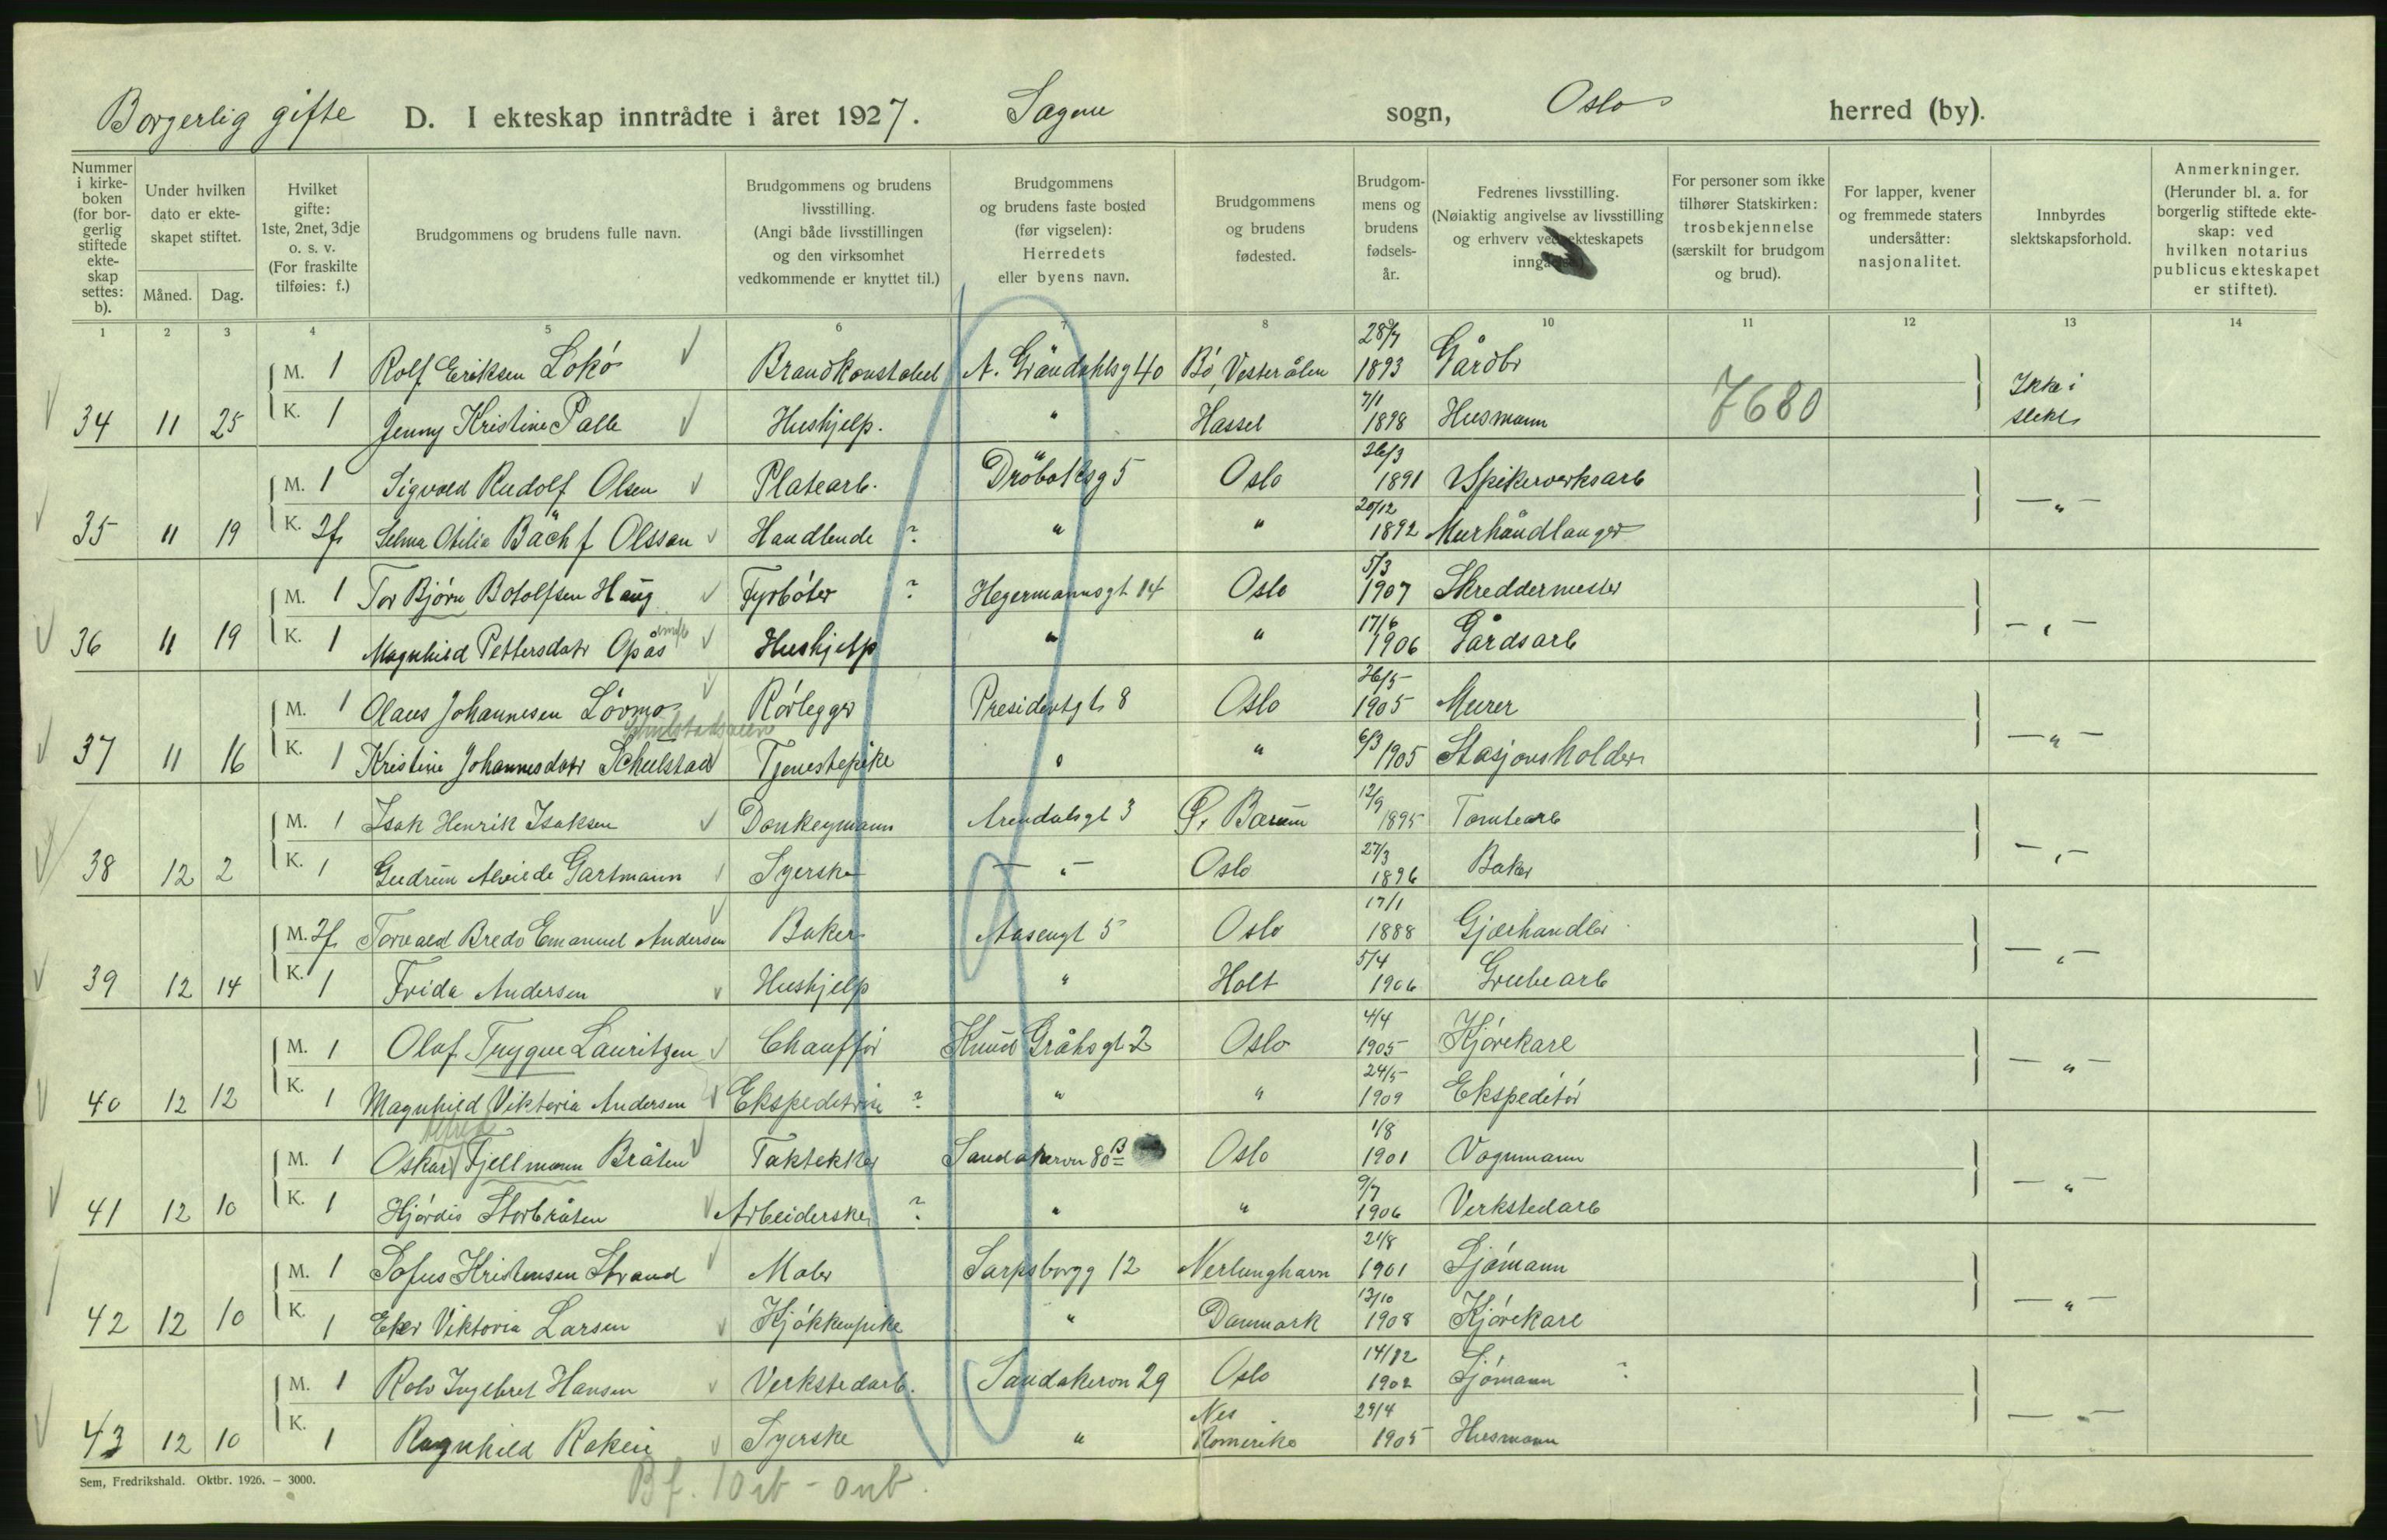 Borgerlig gifte D. I ekteskap inntrådte i året 1927. Sagene sogn, Oslo herred (by).
Nummer i kirke-boken (for bor-gerlig stiftede ekte-skap settes: b).
Under hvilken dato er ekte-skapet stiftet.
Måned. Dag.
Hvilket gifte: 1ste, 2net, 3dje o. s. v. (For fraskilte tilføies: f.)
Brudgommens og brudens fulle navn.
Brudgommens og brudens livsstilling. (Angi både livsstillingen og den virksomhet vedkommende er knyttet til.)
Brudgommens og brudens faste bosted (før vigselen): Herredets eller byens navn.
Brudgommens og brudens fødested.
Brudgom-mens og brudens fødsels-år.
Fedrenes livsstilling. (Nøiaktig angivelse av livsstilling og erhverv ved ekteskapets
For personer som ikke tilhører Statskirken: trosbekjennelse (særskilt for brudgom og brud).
For lapper, kvener og fremmede staters undersåtter: nasjonalitet.
Innbyrdes slektskapsforhold.
Anmerkninger. (Herunder bl. a. for borgerlig stiftede ekte-skap: ved hvilken notarius publicus ekteskapet er stiftet).
1 2 3 4 5 6 7 8 10 11 12 13 14
M. 1 Rolf Eriksen Lokö Brandkonstabel A. Gröndahlsg 40 Bö, Vesterålen 28/7 1893 Gårdbr
34 11 25 K. 1 Jenny Kristine Palle Hushjelp. " Hassel 7/1 1898 Husmann 7680 Ikke i slekt
M. 1 Sigvald Rudolf Olsen Platearb. Dröbaksg 5 Oslo 26/3 1891 Spikerverksarb
35 11 19 K. 2f. Selma Otilia Bäck f Olsson Handlende ? " " 20/12 1892 Murhåndlanger — " —
M. 1 Tor Björn Botolfsen Haug Fyrböter ? Hegermannsgt 14 Oslo 5/3 1907 Skreddermester
36 11 19 K. 1 Magnhild Pettersdatr Opås Hushjelp " " 17/6 1906 Gårdsarb — " —
M. 1 Olaus Johannesen Lövmo Rörlegger Presidentgt 8 Oslo 26/5 1905 Murer
37 11 16 K. 1 Kristine Johannesdatr Schulstad Tjenestepike " " 6/3 1905 Stasjonsholder — " —
M. 1 Isak Henrik Isaksen Donkeymann Arendalsgt 3 Ø. Bærum 12/9 1895 Tomtearb
38 12 2 K. 1 Gudrun Alvilde Gartmann Syerske — " — Oslo 27/3 1896 Baker — " —
M. 2f. Torvald Bredo Emanuel Andersen Baker Aasengt 5 Oslo 17/1 1888 Gjærhandler
39 12 14 K. 1 Frida Andersen Hushjelp " Holt 5/4 1906 Grubearb — " —
M. 1 Olaf Trygve Lauritzen Chaufför Knud Gråhsgt 2 Oslo 4/4 1905 Kjörekare
40 12 12 K. 1 Magnhild Viktoria Andersen Ekspeditrise ? " " 24/5 1909 Ekspeditör — " —
M. 1 Oskar Fjellmann Bråten Taktekker Sandakervn 80 B Oslo 1/8 1901 Vognmann
41 12 10 K. 1 Hjördis Storbråten Arbeiderske ? " " 9/7 1906 Verkstedarb — " —
M. 1 Sofus Kristensen Strand Maler Sarpsborgg 12 Nerlunghavn 21/8 1901 Sjömann
42 12 10 K. 1 Viktoria Larsen Kjökkenpike " Danmark 13/10 1908 Kjörekare — " —
M. 1 Rolv Ingebret Hansen Verkstedarb. Sandakervn 29 Oslo 14/12 1902 Sjömann ?
43 12 10 K. 1 Ragnhild Rakeie Syerske " Nes Romerike 29/4 1905 Husmann — " —
Sem, Fredrikshald. Oktbr. 1926. — 3000.